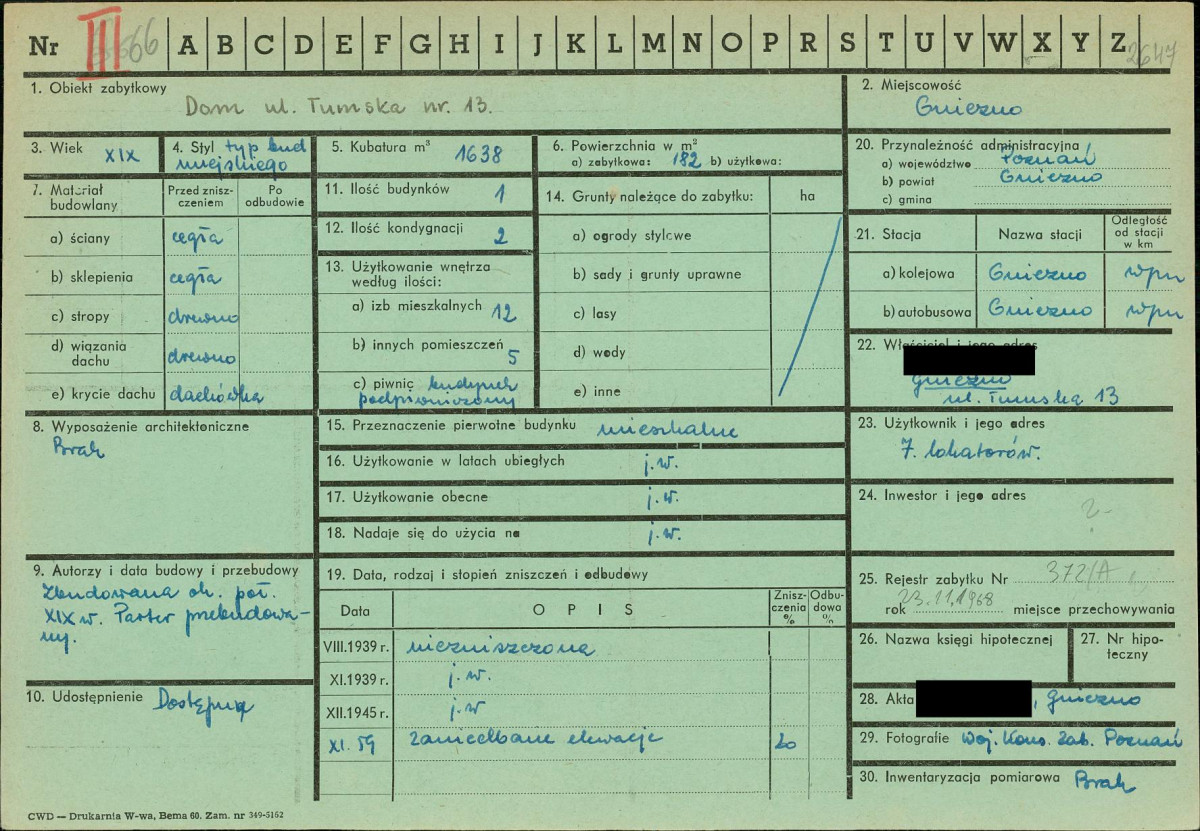 Nr III 66 A B C D E F G H I J K L M N O P R S T U V W X Y Z 2647
1. Obiekt zabytkowy
Dom ul. Tumska nr. 13.
2. Miejscowość
Gniezno
3. Wiek XIX
4. Styl typ bud
miejskiego
5. Kubatura m³ 1638
6. Powierzchnia w m²
a) zabytkowa: 182 b) użytkowa:
20. Przynależność administracyjna
a) województwo Poznań
b) powiat Gniezno
c) gmina
7. Materiał
budowlany
Przed znisz-
czeniem
Po
odbudowie
a) ściany cegła
b) sklepienia cegła
c) stropy drewno
d) wiązania
dachu drewno
e) krycie dachu dachówka
11. Ilość budynków 1
12. Ilość kondygnacji 2
13. Użytkowanie wnętrza
według ilości:
a) izb mieszkalnych 12
b) innych pomieszczeń 5
c) piwnic budynek
podpiwniczony
14. Grunty należące do zabytku: ha
a) ogrody stylowe
b) sady i grunty uprawne
c) lasy
d) wody
e) inne
21. Stacja Nazwa stacji
Odległość
od stacji
w km
a) kolejowa Gniezno
b) autobusowa Gniezno
22. Właściciel i jego adres
Gniezno
ul. Tumska 13
8. Wyposażenie architektoniczne
Brak
15. Przeznaczenie pierwotne budynku mieszkalne
16. Użytkowanie w latach ubiegłych j.w.
17. Użytkowanie obecne j.w.
18. Nadaje się do użycia na j.w.
23. Użytkownik i jego adres
7. lokatorów.
24. Inwestor i jego adres
9. Autorzy i data budowy i przebudowy
Zbudowana ok. poł.
XIX w. Parter przebudowa-
ny.
10. Udostępnienie Dostępny
19. Data, rodzaj i stopień zniszczeń i odbudowy
Data O P I S
Znisz-
czenia
%
Odbu-
dowa
%
VIII.1939 r. niezniszczona
XI.1939 r. j.w.
XII.1945 r. j.w
XI.59 zaniedbane elewacje 20
25. Rejestr zabytku Nr 372/A
rok 23.11.1968 miejsce przechowywania
26. Nazwa księgi hipotecznej
27. Nr hipo-
teczny
28. Akta , Gniezno
29. Fotografie Woj. Kons. Zab. Poznań
30. Inwentaryzacja pomiarowa Brak
CWD — Drukarnia W-wa, Bema 60. Zam. nr 349-5162